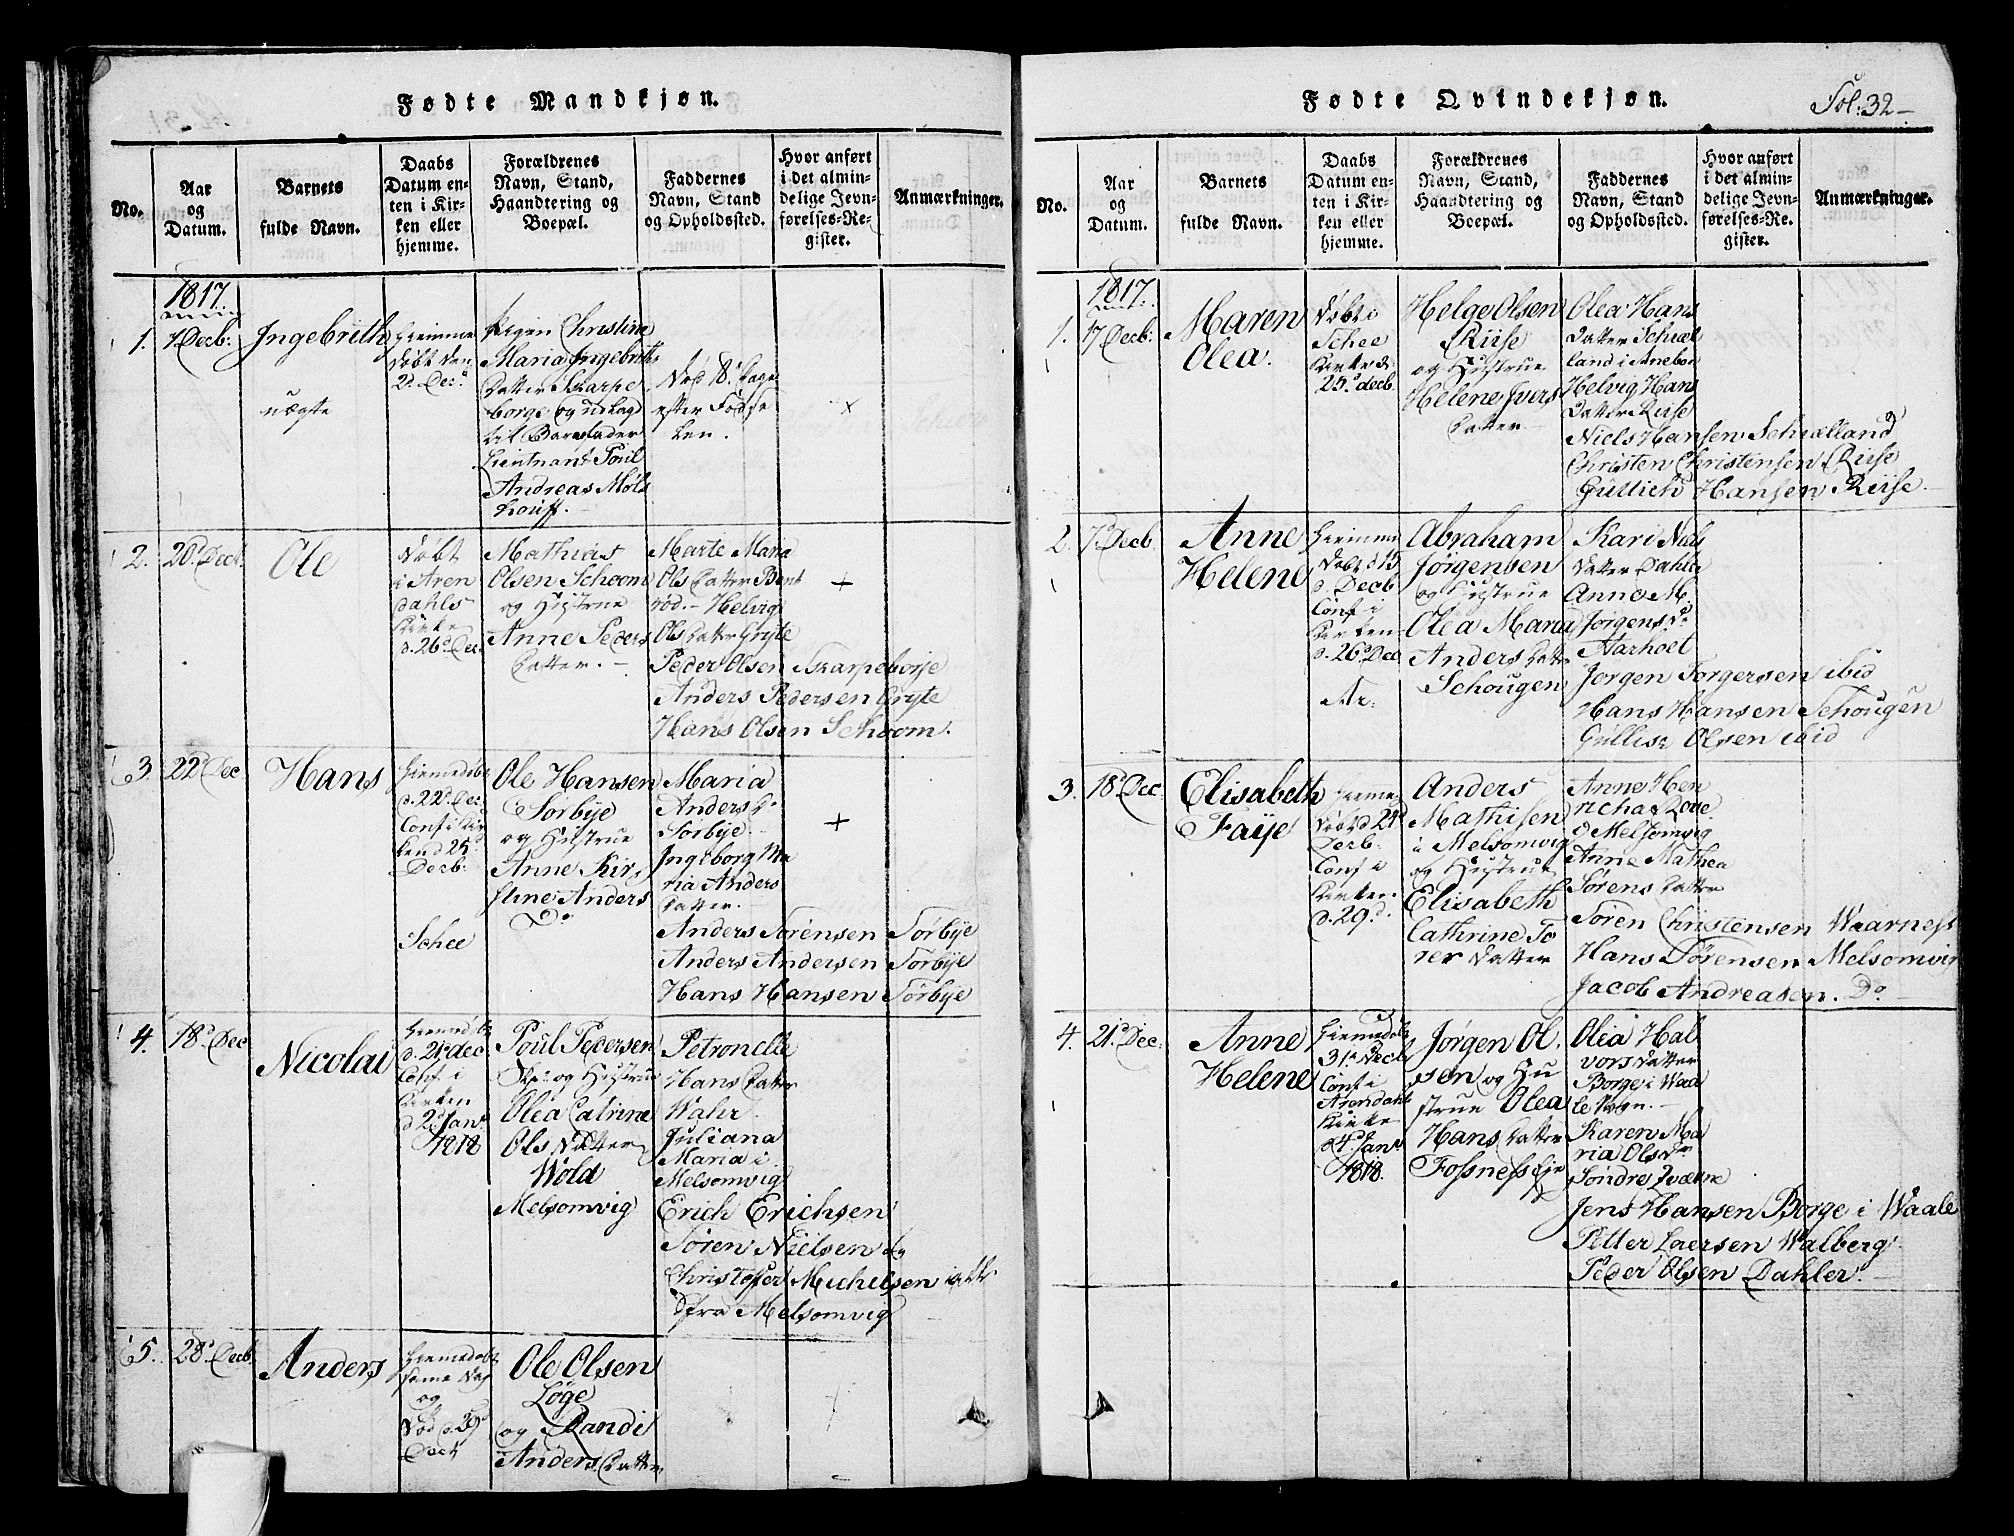 Fødte Mandkjøn.
No.
Aar
og
Datum.
Barnets
fulde Navn.
Daabs
Datum en-
ten i Kir-
ken eller
hjemme.
Forældrenes
Navn, Stand,
Haandtering og
Boepæl.
Faddernes
Navn, Stand
og Opholdssted.
Hvor anført
i det almin-
delige Jevn-
førelses-Re-
gister.
Anmærkninger.
1817.
1.
7 Decb:
Ingebrith
uægte
hiemme
døbt den
2d. Dec.
Pigen Christine
Maria Ingebrits
Datter Skarpe
borge og udlagd
til Barnefader
Lieutnant Poul
Andreas Møls
Død 18 Dage
efter Føds
len.
x
2.
20d Decb.
Ole
Døbt
i Aren
dahls
Kirke
d. 26d Dec.
Mathias
Olsen Schoom
og Hustrue
Anne Peders
Datter.
Marte Maria
Ols Datter Bent
rød. - Helvig
Ols Datter Gryte
Peder Olsen Skarpeborje
Anders Pedersen Gryte
Hans Olsen Schoom.
+
3.
22d Dec
Hans
hiemedøbt
d. 22d. Dec.
Conf. i Kir
ken d 25
Decb:
Schee
Ole Hansen
Sørbye
og Hustrue
Anne Kirs
stine Anders
Do
Maria
Anders D.
Sørbye
Ingeborg Ma
ria Anders
Datter.
Anders Sørensen Sørbye
Anders Andersen Sørbye
Hans Hansen Sørbye
+
4.
18d Dec
Nicolai
hiemedøbt
d. 21d dec
Conf. i
Kirken
d 2d Jan.
1818
Poul Pedersen
og Hustrue
Olea Catrine
Ols Datter
Wold
Melsomvig
Petronelle
Hans Datter
Wahr.
Juliana
Maria i
Melsomvig
Erich Erichsen
Søren Nielsen og
Christoffer Michelsen
fra Melsomvig
5.
28d Decb.
Anders
hiemedøbt
same Dag
og
Død d. 29d
Decb
Ole Olsen
Løge
og Randi
Anders Datter
Fødte Qvindekjøn.
Fol. 32
No.
Aar
og
Datum.
Barnets
fulde Navn.
Daabs
Datum en-
ten i Kir-
ken eller
hjemme.
Forældrenes
Navn, Stand,
Haandtering og
Boepæl.
Faddernes
Navn, Stand
og Opholdssted.
Hvor anført
i det almin-
delige Jevn-
førelses-Re-
gister.
Anmærkninger.
1817.
1.
17 Decb:
Maren
Olea.
Døbt i
Schee
Kirke d.
25d decb
Helge Olsen
Riise
og Hustrue
Helene Ivers
Datter
Olea Hans
Datter Schiæl
land i Anebo
Helvig Hans
Datter Riise
Niels Hansen Schiælland
Christen Christensen Riise
Güllich Hansen Riise.
2.
7d Decb
Anne
Helene
hiemme
Døbt d 15
Decb
Conf i
Kirken
d. 26d Dec
Ar.
Abraham
Jørgensen
og Hustrue
Olea Maria
Anders Datter
Schougen
Kari Niels
Datter Dahler
Anne M.
Jørgens D.
Aarholt
Jørgen Torgersen ibid
Hans Hansen Schougen
Gullisz Olsen ibid
3.
18d Dec
Elisabeth
Faije
hieme
Døbt d 21d
Decb.
Conf i
Kirken
d. 29d.
Anders
Mathisen
i Melsomvig
og Hustrue
Elisabeth
Cathrine To
rer Datter
Anne Hen
richa Rove
Melsomvig
Anne Mathea
Sørens Datter
Søren Christensen Waarness
Hans Sørensen Melsomvig
Jacob Andreasen. Do
4.
21d. Dec:
Anne
Helene
hiemedøbt
31d Decb
Conf. i
Arendahls
Kirke
d 4d Jan.
1818.
Jørgen Ol.
sen og Hu
strue Olea
Hans Datter
Fossness Eje
Olea Hal
vors Datter
Borge i Waa
le Sogn.
Karen Ma
ria Ols Dr
Søndre
Jens Hansen Borge i Waale
Petter Laersen Walberg.
Peder Olsen Dahler.